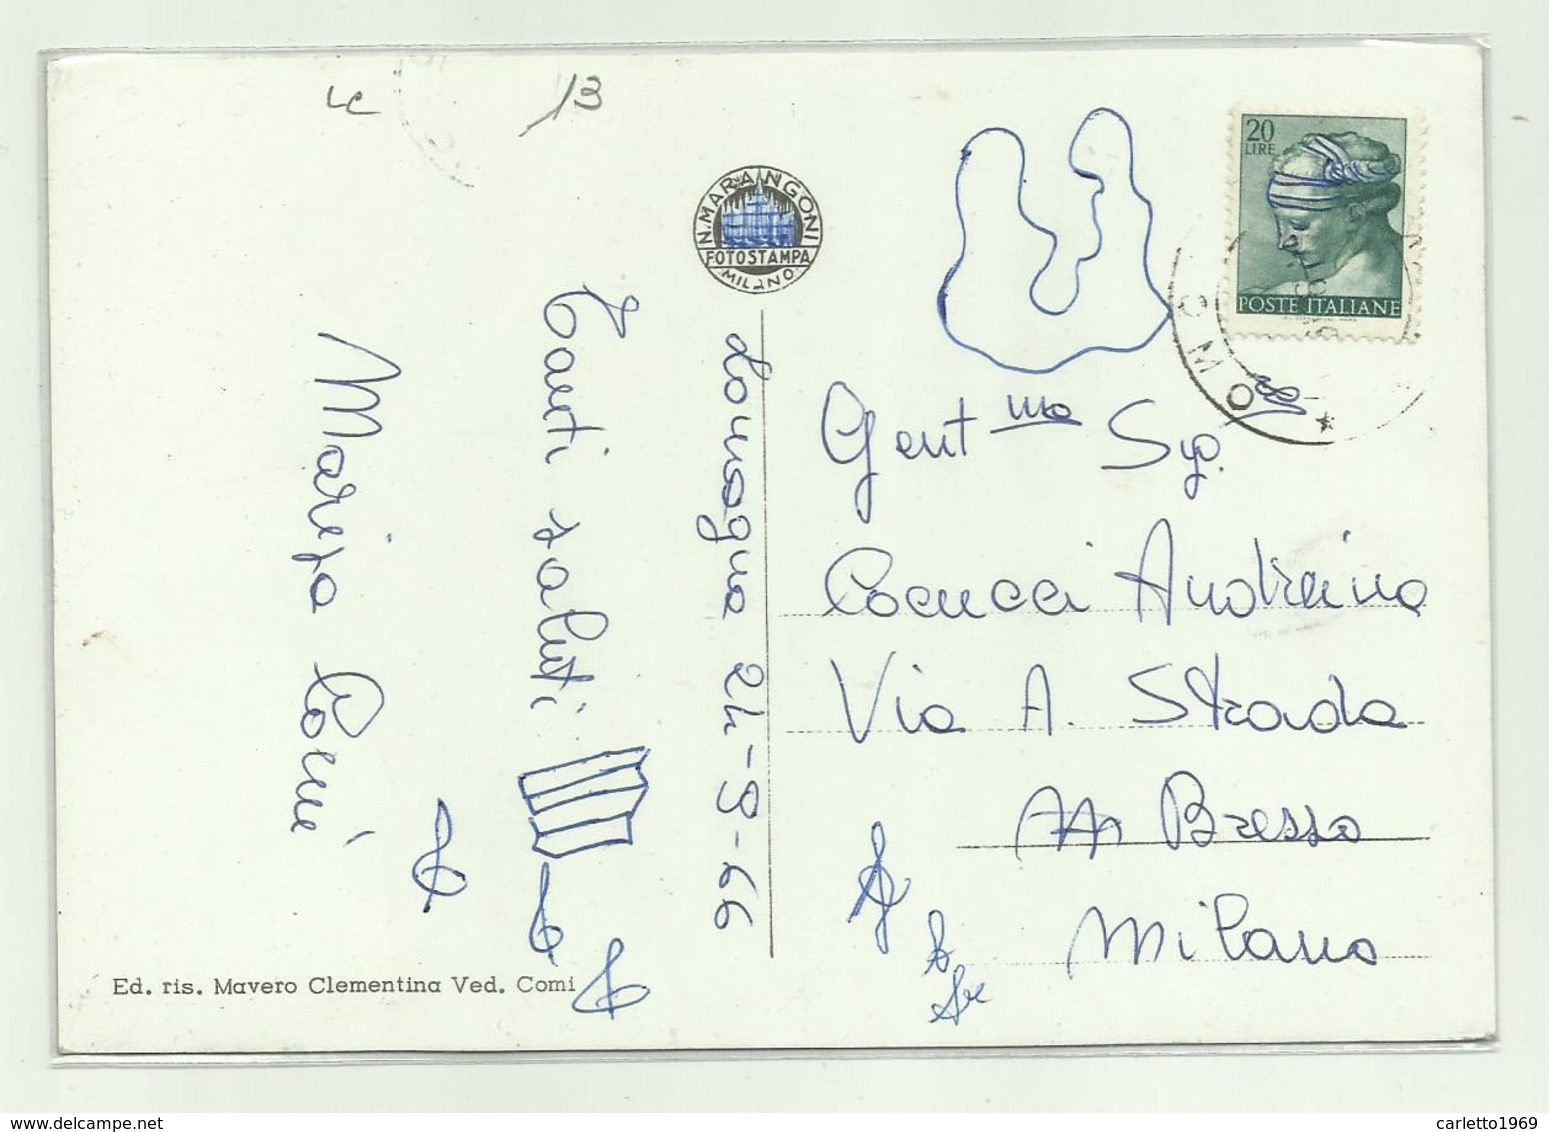 Lc
13
N. MARANGONI
FOTOSTAMPA
MILANO
20
LIRE
POSTE ITALIANE
COMO
Lomagna 24-9-66
Tanti saluti
Marisa Comi
Gent ma Sig.
Andreina
Via A. Strada
Bresso
Milano
Ed. ris. Mavero Clementina Ved. Comi
carletto1969